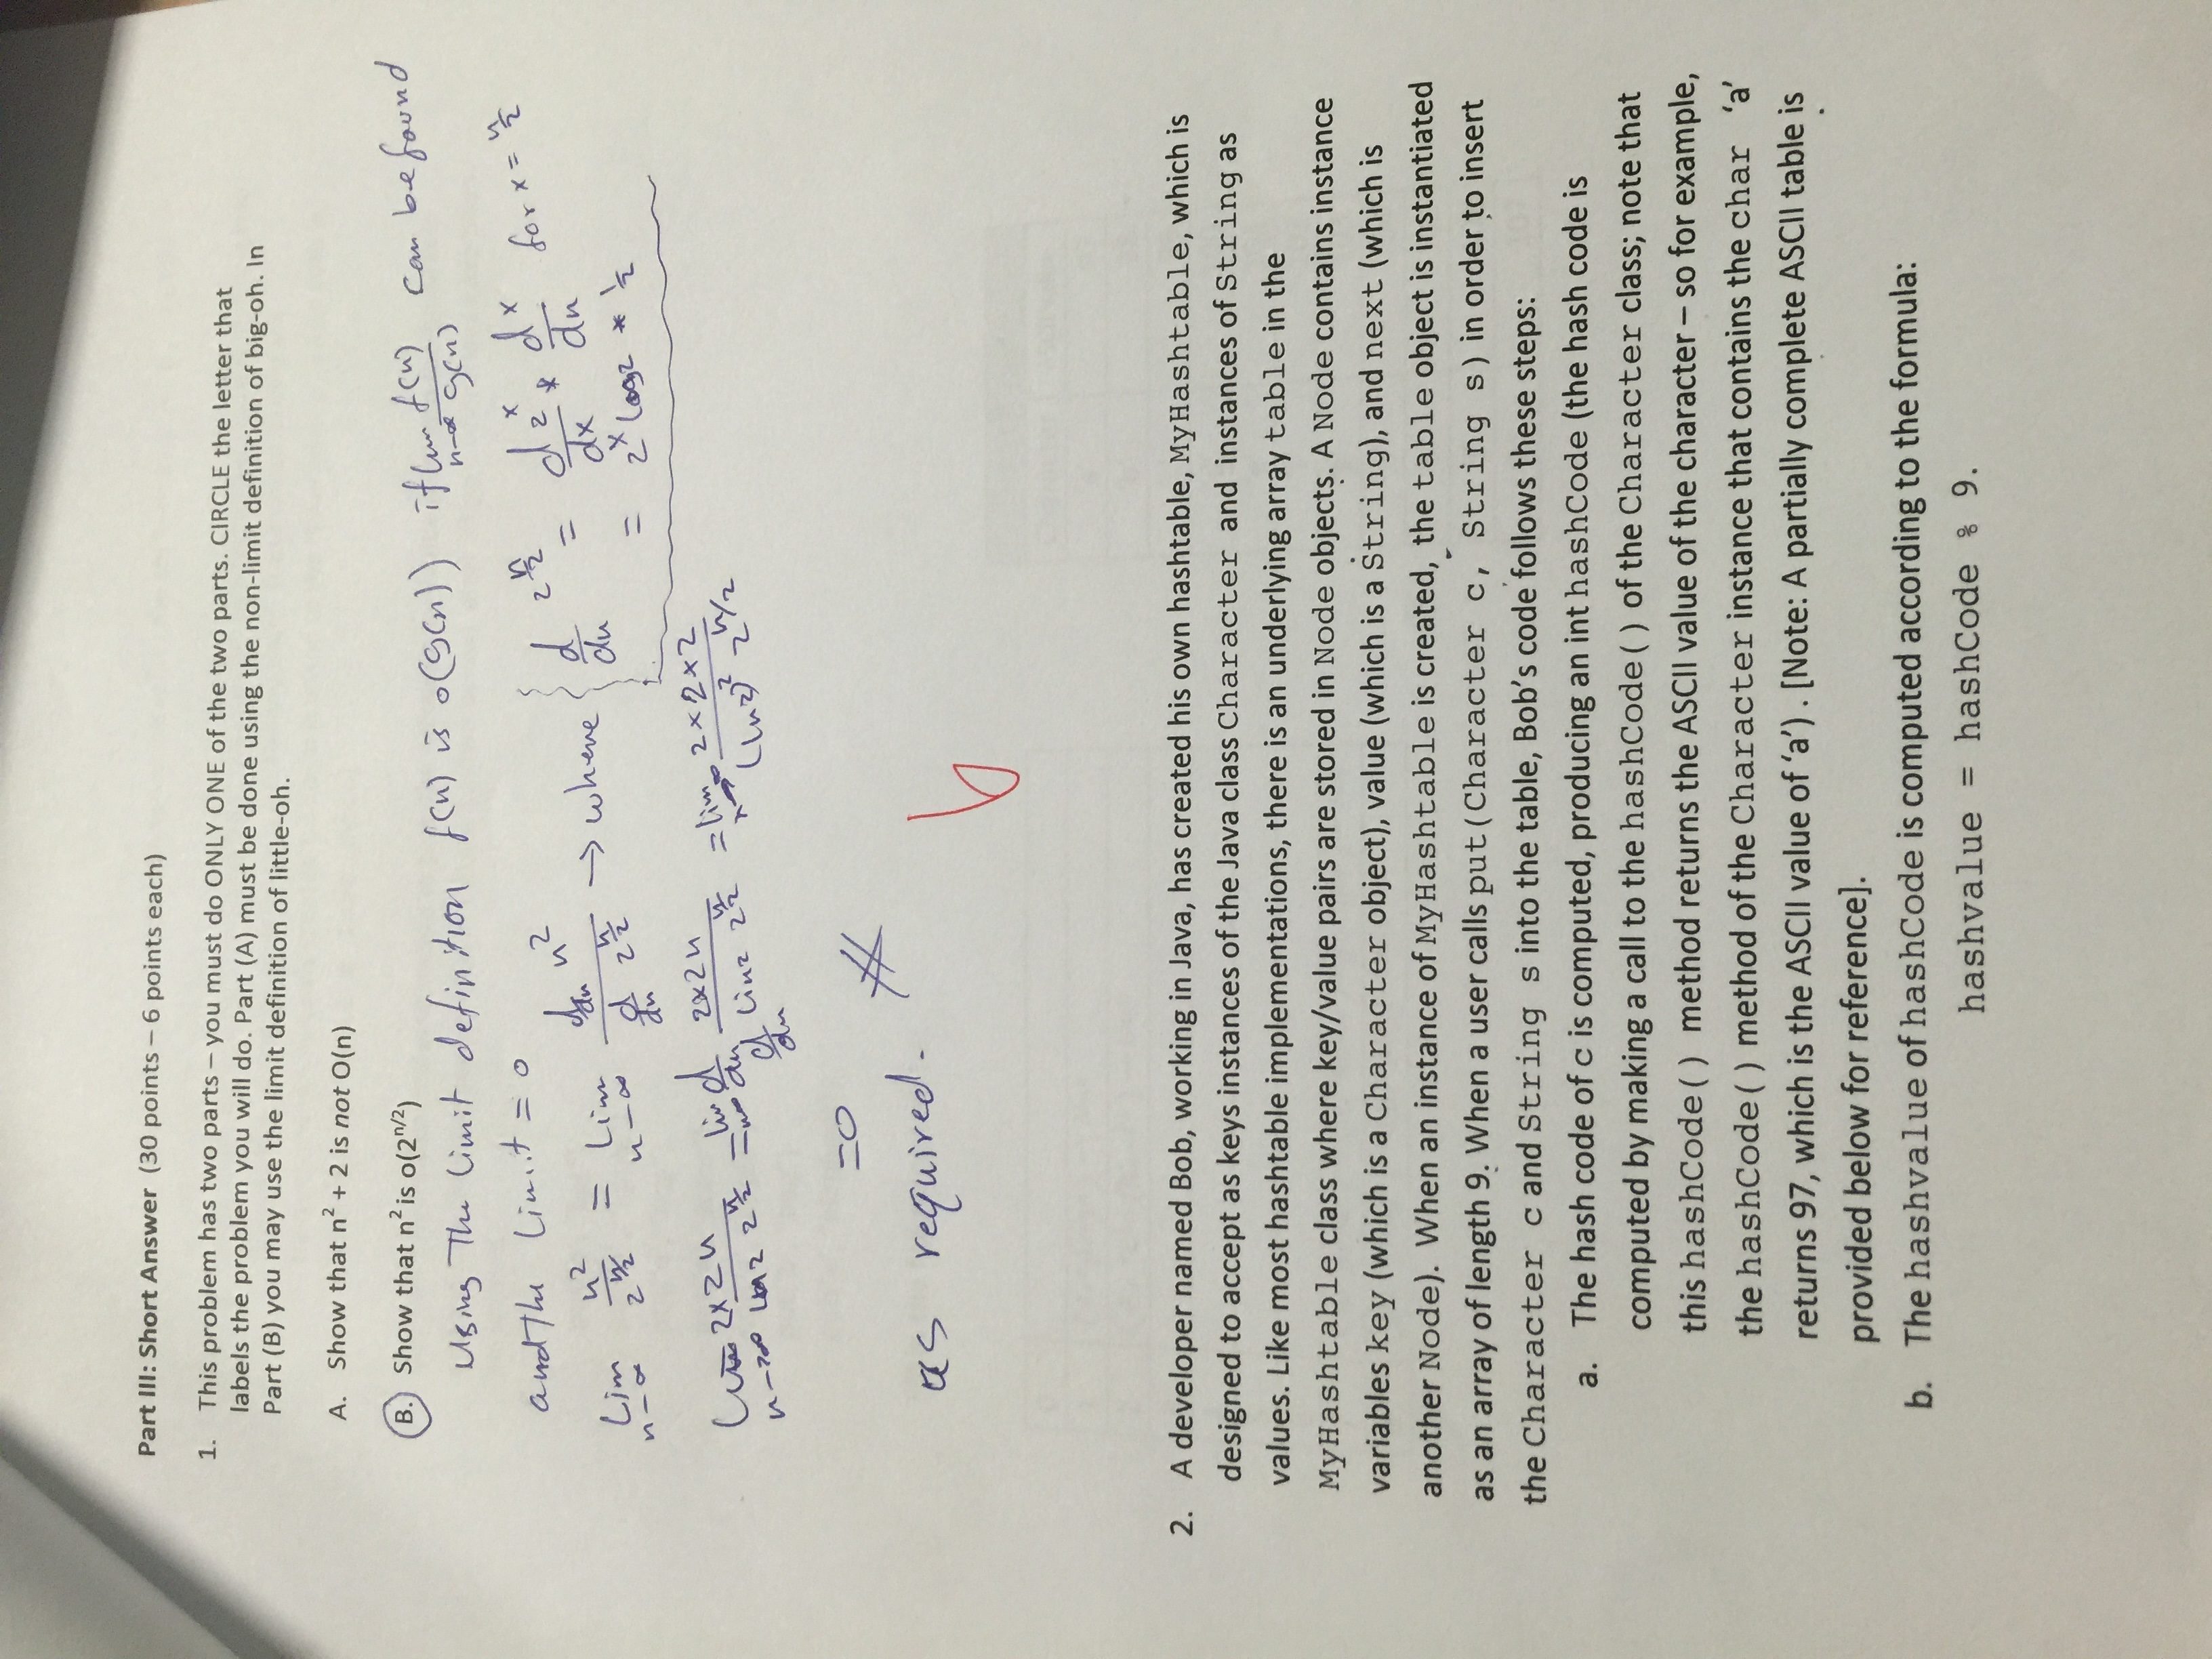 Part III: Short Answer (30 points – 6 points each)
1. This problem has two parts – you must do ONLY ONE of the two parts. CIRCLE the letter that
labels the problem you will do. Part (A) must be done using the non-limit definition of big-oh. In
Part (B) you may use the limit definition of little-oh.
A. Show that n² + 2 is not O(n)
B. Show that n² is o(2^(n/2))
Using The limit definition f(n) is o(g(n)) if lim n→∞ f(n)/g(n) can be found
and the limit = 0
Lim n→∞ n²/2^(n/2) = Lim n→∞ (d/dn n²)/(d/dn 2^(n/2)) → where { d/dn 2^(n/2) = d2^x/dx * dx/dn for x = n/2
= 2^x log2 * 1/2
Lim n→∞ 2×2n / ln2 2^(n/2) = lim n→∞ (d/dn 2×2n)/(d/dn lin2 2^(n/2)) = lim 2×2×2/((ln2)² 2^(n/2))
=0
as required. #
6
2. A developer named Bob, working in Java, has created his own hashtable, MyHashtable, which is
designed to accept as keys instances of the Java class Character and instances of String as
values. Like most hashtable implementations, there is an underlying array table in the
MyHashtable class where key/value pairs are stored in Node objects. A Node contains instance
variables key (which is a Character object), value (which is a String), and next (which is
another Node). When an instance of MyHashtable is created, the table object is instantiated
as an array of length 9. When a user calls put(Character c, String s) in order to insert
the Character c and String s into the table, Bob's code follows these steps:
a. The hash code of c is computed, producing an int hashCode (the hash code is
computed by making a call to the hashCode() of the Character class; note that
this hashCode() method returns the ASCII value of the character – so for example,
the hashCode() method of the Character instance that contains the char ‘a’
returns 97, which is the ASCII value of ‘a’) . [Note: A partially complete ASCII table is
provided below for reference].
b. The hashvalue of hashCode is computed according to the formula:
hashvalue = hashCode % 9.